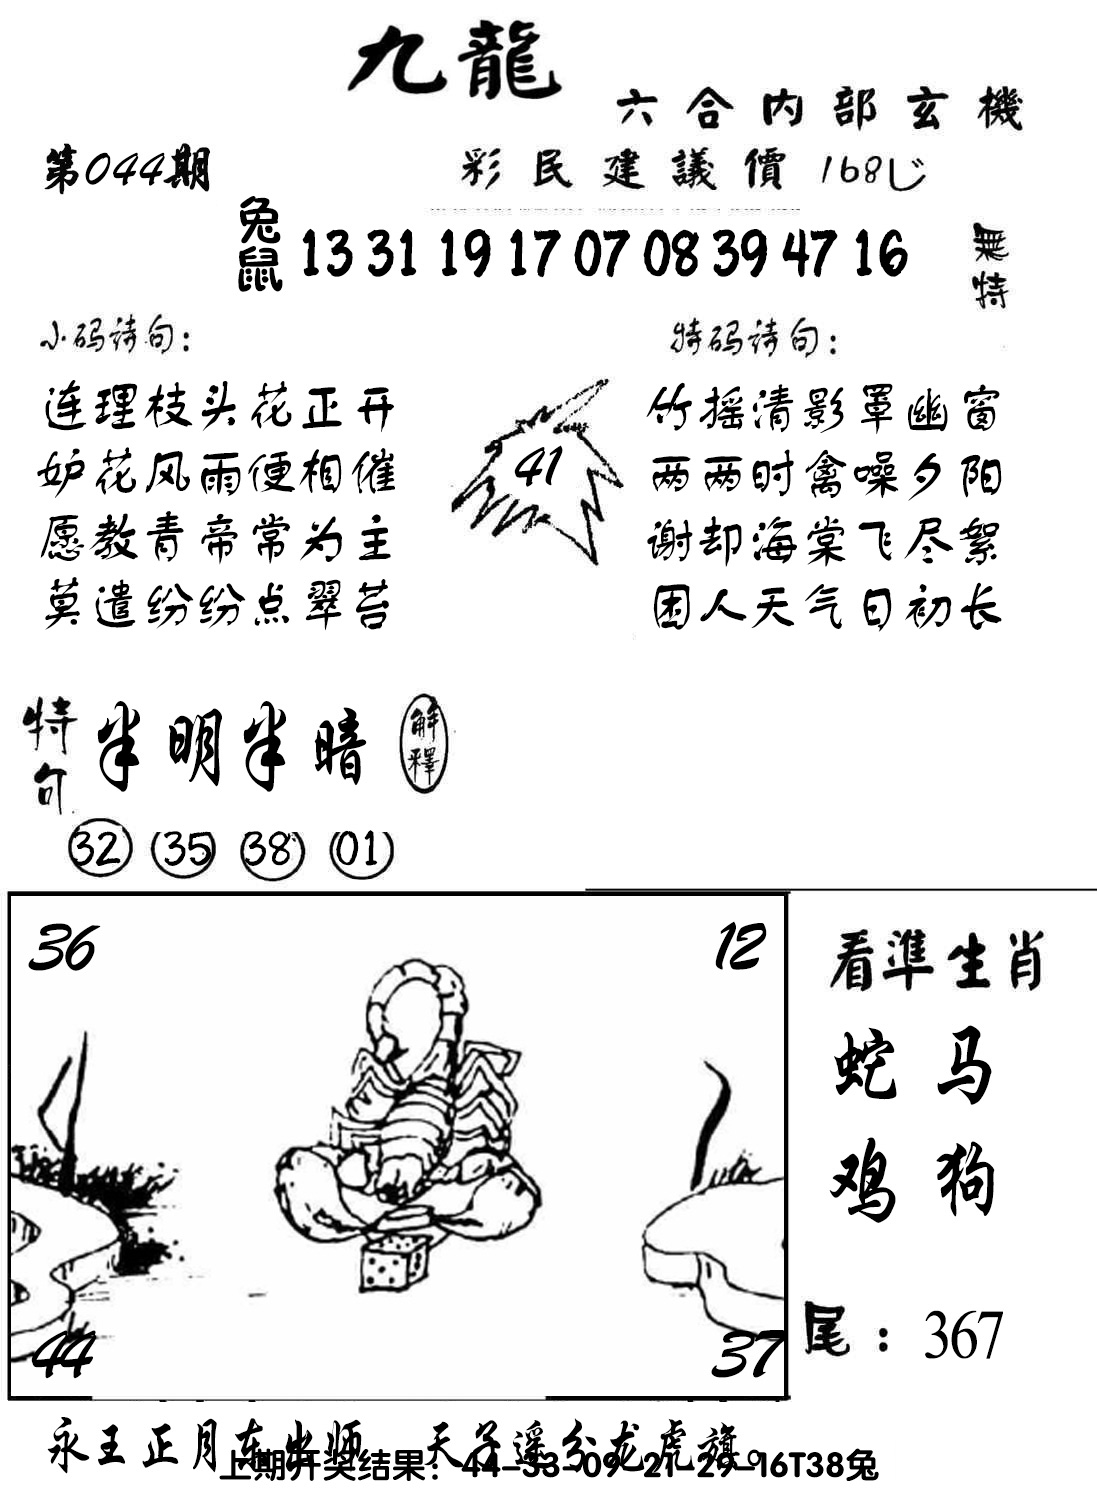 九龍
六合内部玄機
第044期
彩民建議價 168
兔鼠 13 31 19 17 07 08 39 47 16
無特
小码诗句:
连理枝头花正开
妒花风雨便相催
愿教青帝常为主
莫遣纷纷点翠苔
41
特码诗句:
竹摇清影罩幽窗
两两时禽噪夕阳
谢却海棠飞尽絮
困人天气日初长
特句 半明半暗 解釋
32 35 38 01
36 12
44 37
看準生肖
蛇马
鸡狗
尾:367
永王正月东出师 天子遥分龙虎旗。
上期开奖结果:44-33-09-21-29-16T38兔